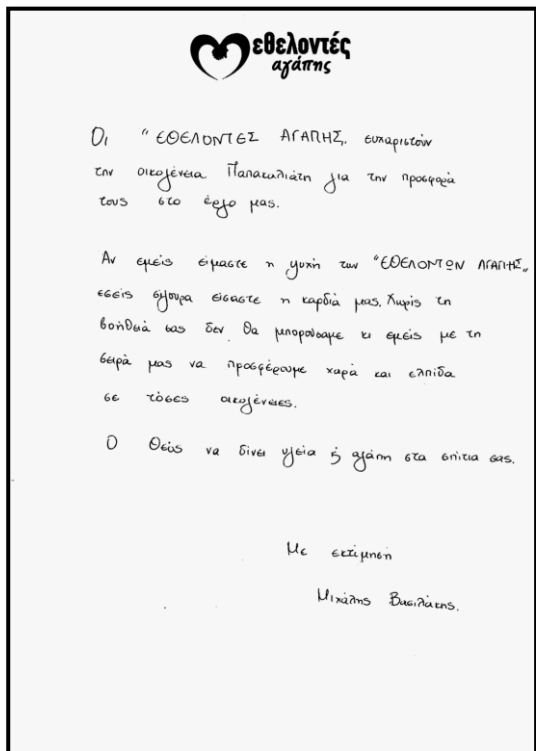 εθελοντές
αγάπης
Οι "ΕΘΕΛΟΝΤΕΣ ΑΓΑΠΗΣ" ευχαριστούν
την οικογένεια Παπακαλιάτη για την προσφορά
τους στο έργο μας.
Αν εμείς είμαστε η ψυχή των "ΕΘΕΛΟΝΤΩΝ ΑΓΑΠΗΣ"
εσείς σίγουρα είσαστε η καρδιά μας. Χωρίς τη
βοήθειά σας δεν θα μπορούσαμε κι εμείς με τη
σειρά μας να προσφέρουμε χαρά και ελπίδα
σε τόσες οικογένειες.
Ο Θεός να δίνει υγεία & αγάπη στα σπίτια σας.
Με εκτίμηση
Μιχάλης Βασιλάκης.